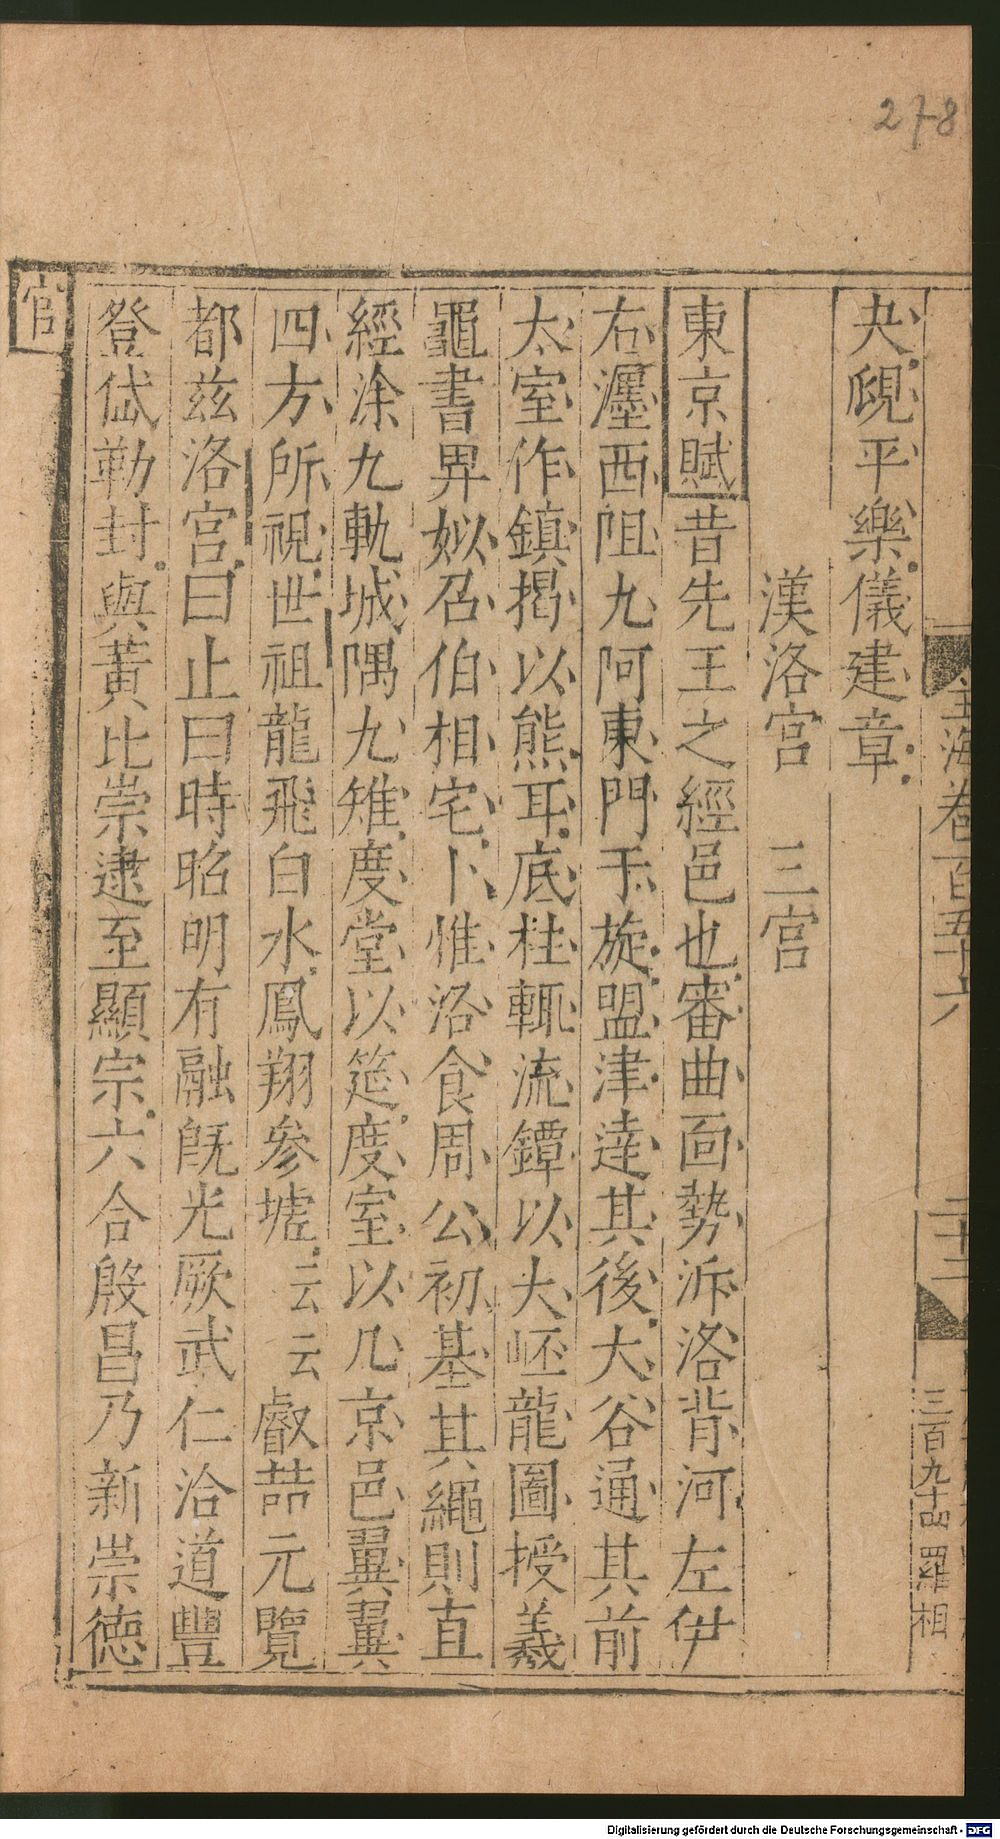 278
玉海卷百五十六
二十二
三百九十四 羅相
夬覛平樂儀建章
漢洛宮　三宮
東京賦昔先王之經邑也審曲面勢泝洛背河左伊
右瀍西阻九阿東門于旋盟津達其後大谷通其前
太室作鎮揭以熊耳底柱輟流鐔以大岯龍圖授羲
龜書畀姒召伯相宅卜惟洛食周公初基其繩則直
經涂九軌城隅九雉度堂以筵度室以几京邑翼翼
四方所視世祖龍飛白水鳳翔參墟云云叡喆元覽
都兹洛宮曰止曰時昭明有融旣光厥武仁洽道豐
登岱勒封與黃比崇逮至顯宗六合殷昌乃新崇德
宮
Digitalisierung gefördert durch die Deutsche Forschungsgemeinschaft - DFG